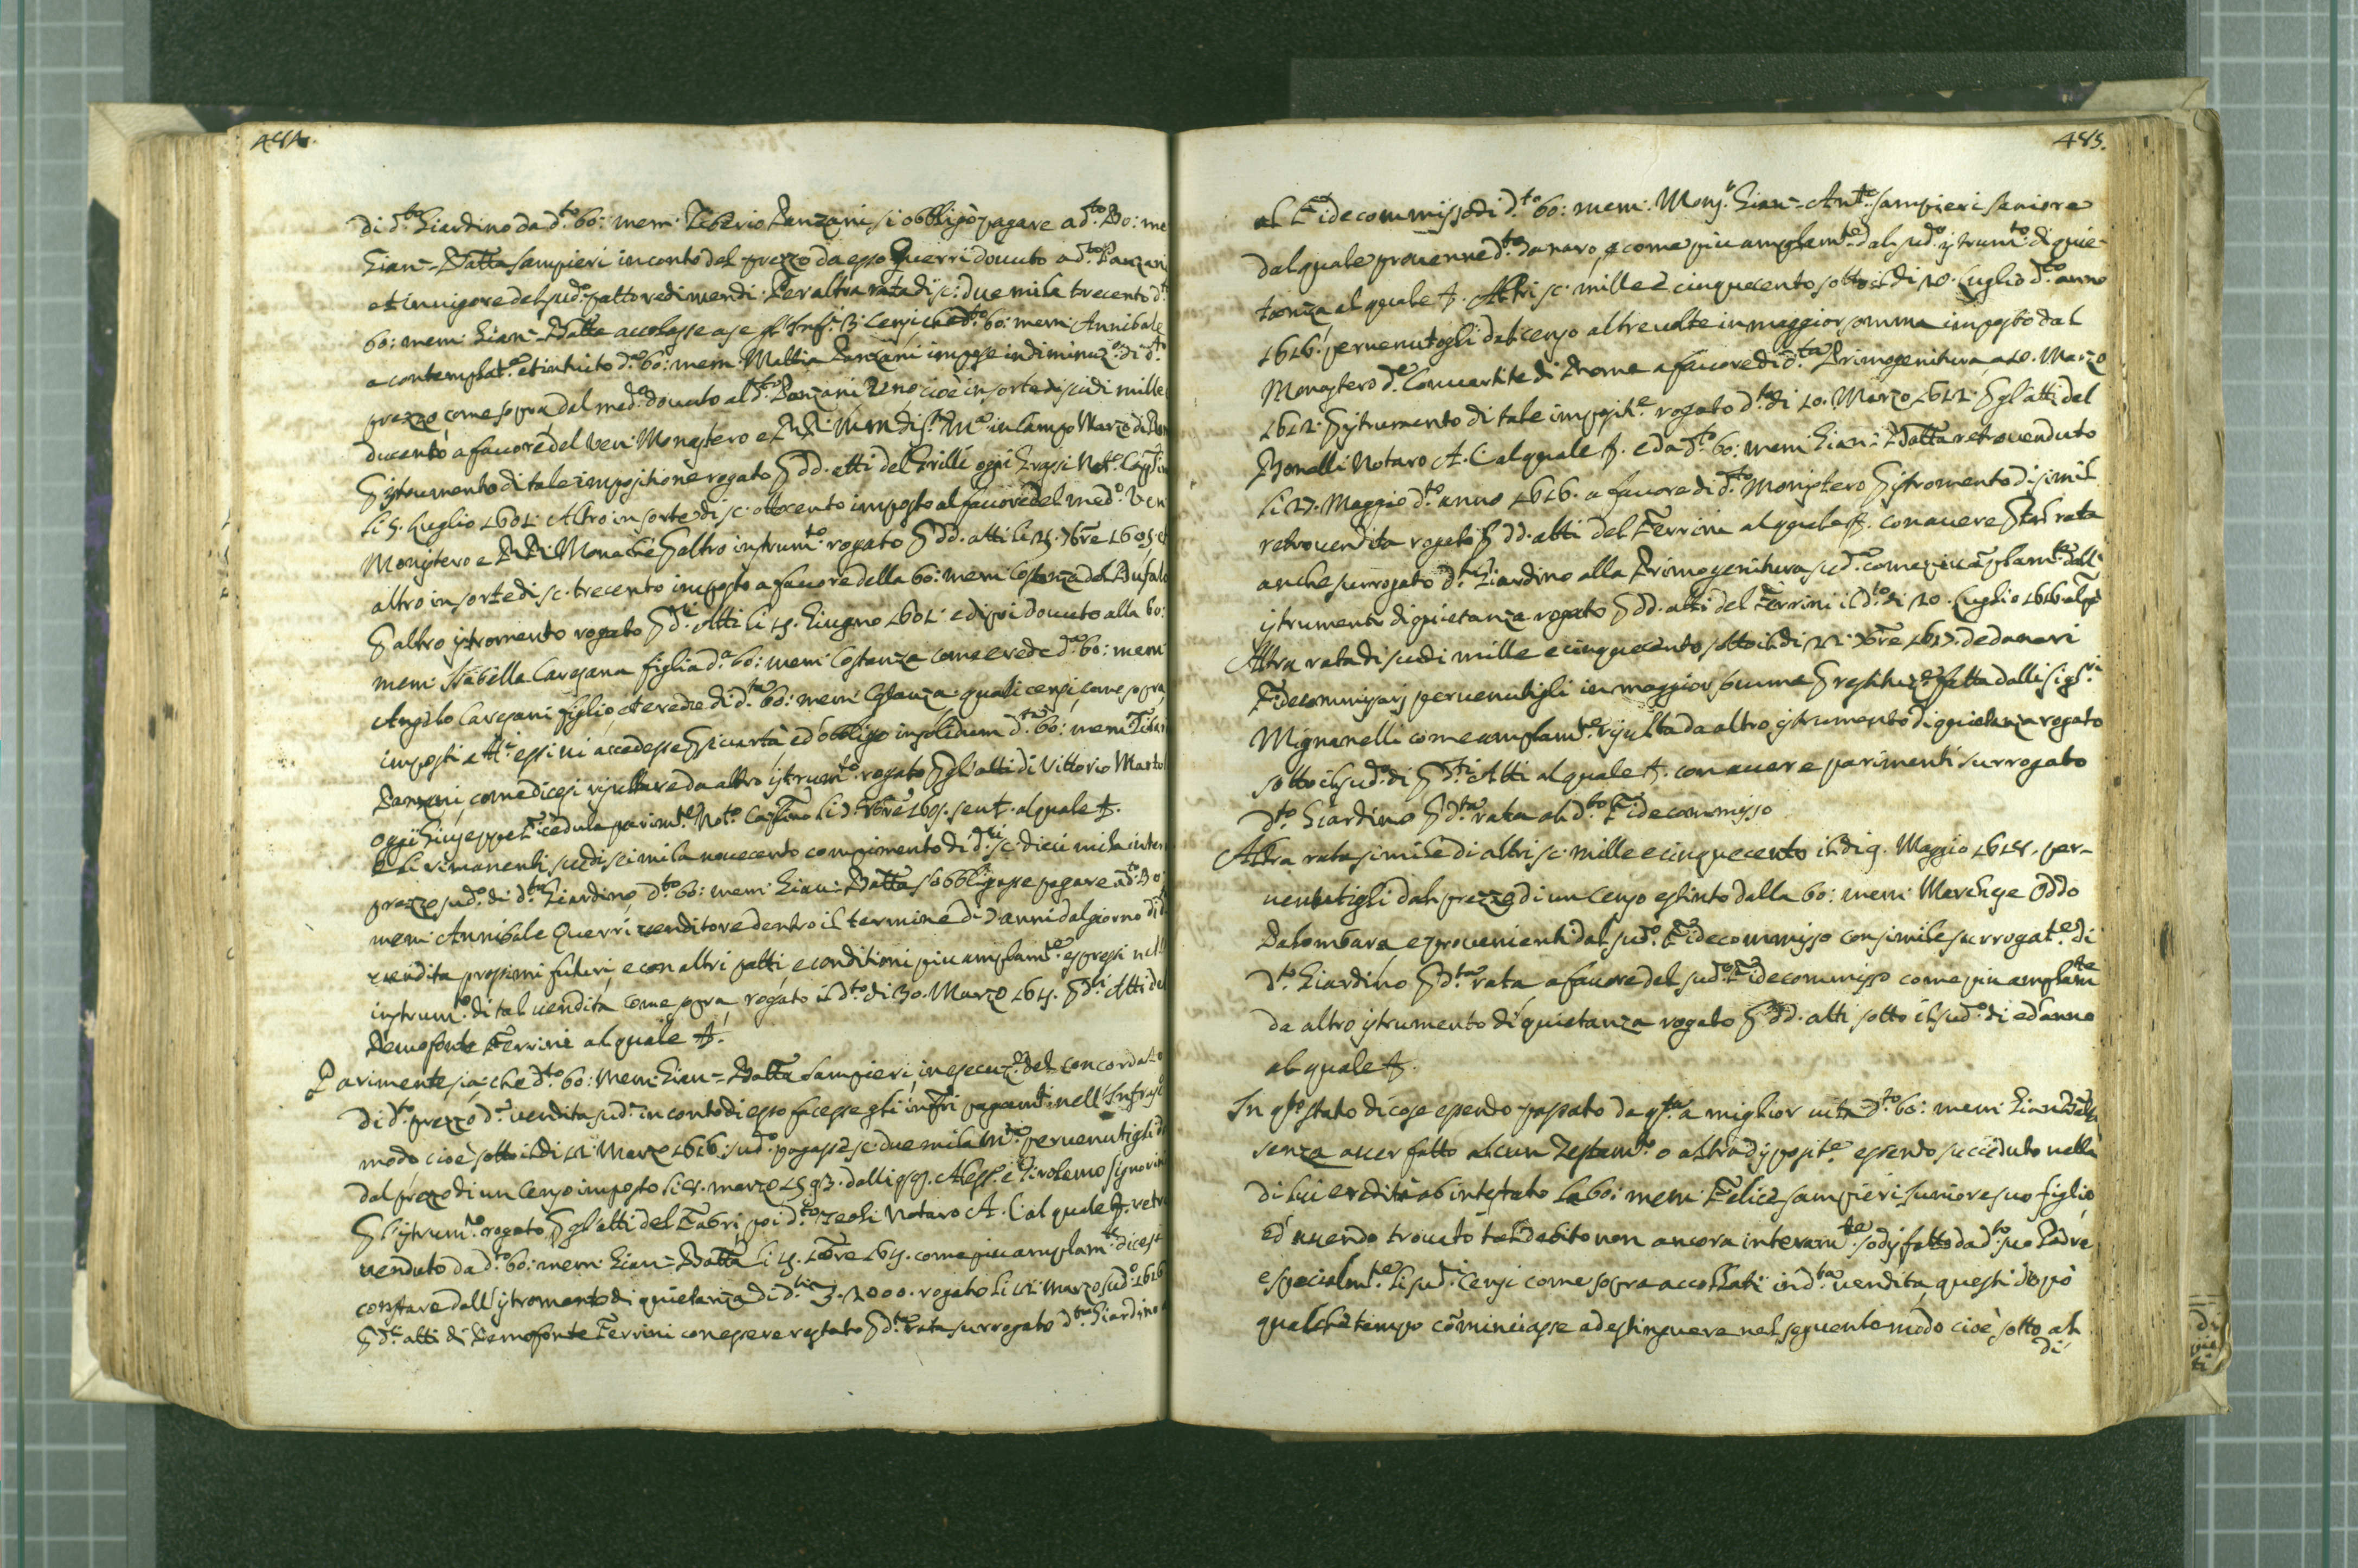 484.
di d.to Giardino da d.to bo: mem: Tiberio Panzani si obbligò pagare a d.to Bo: me
Gian-Batta Sampieri in conto del prezzo da esso Guerri dovuto a d.to Panzani
et in vigore del sud.o patto redimendi. Per altra rata di sc: due mila trecento d.
bo: mem: Gian-Batta accollasse a se gl'Infr. 3 Censi che d.to bo: mem: Annibale
a contemplat.e et intuito d.a bo: mem: Mattia Panzani impose in diminuz.e di d.to
prezzo come sopra dal med.o dovuto al d.to Panzani Uno cioè in sorte di scudi mille
ducento a favore del Ven: Monastero e RR: Mon di S. M.a in Campo Marzo di Rom
P istrumento di tale impositione rogato P dd. atti del Grilli oggi Grassi Not.o Capitno
li 5. Luglio 1601. Altro in sorte di sc. ottocento imposto al favore del med.o Ven
Monistero e RR: Monache P altro instrum.to rogato P dd. atti li 15. 7bre 1605 et
altro in sorte di sc. trecento imposto a favore della bo: mem: Costanza del Bufalo
P altro istromento rogato P d.ti Atti li 15. Giugno 1601. e di poi dovuto alla bo:
mem: Isabella Cavejana figlia d.a bo: mem: Costanza come erede d.a bo: mem
Angelo Cavejani figlio, et erede di d.ta bo: mem: Costanza, quali censi, come sopra
imposti e A.c essi vi accedesse P sicurtà ed obbligo in solidum d.ta bo: mem: Tiberio
Panzani, come dicesi risultare da altro istrum.to rogato P gl'atti di Vittorio Martol
oggi Giuseppe Ticedula parim.te Not.o Capitno li d. 8bre 1605. seu t. al quale &.
E li rimanenti scudi sei mila novecento compimento di d.ti sc: dieci mila inter
prezzo sud.o di d.to Giardino d.to bo: mem: Gian: Batta s'obbligasse pagare a d.to Bo:
mem: Annibale Guerri venditore dentro il termine di 7 anni dal giorno di d.
vendita prossimi futuri, e con altri patti, e conditioni piu amplam.te espressi nell'
instrum.to di tal vendita come sopra, rogato il d.to di 30. Marzo 1615. P d.ti Atti del
Demofonte Ferrini al quale &.
Parimente sia: che d.to bo: mem: Gian-Batta Sampieri, in esecuz.e del concordato
di d.to prezzo d.a vendita sud.a in conto di esso facesse gli infri pagam.ti nell'Infraso
modo cioè sotto il di 11. Marzo 1616. sud.o pagasse sc: due mila M.ta pervenutigli d
dal prezzo di un Censo imposto li 5. marzo 1593. dalli qq. Aless.o e Tirolemo Signorin
P l'istrum.to rogato P gl'atti del Fabri, poi d.to Teoli Notaro A. C al quale &. retro
venduto da d.to bo: mem: Gian-Batta li 15. 10bre 1615. come piu amplam.te dicesi
constare dall'istromento di quietanza di d.ti 3. 2000. rogato li 11. Marzo sud.o 1616
P d.ti atti di Demofonte Ferrini con essere restato P d.ta rata surrogato d.to Giardino
485.
al Fidecommisso di d.to bo: mem: Mons.r Gian-Ant.o Sampieri Seniore
dal quale provenne d.to danaro, e come piu amplam.te dal sud.o istrum.to di quie-
tanza al quale &. Altri sc: mille e cinquecento sotto il di 20. Luglio d.to anno
1616. pervenutogli dal censo altre volte in maggior somma imposto dal
Monastero d.e Convertite di Roma a favore di d.ta Primogenitura, a 10. Marzo
1612. P istrumento di tale imposit.e rogato d.to di 10. Marzo 1612. P gl'atti del
Bonelli Notaro A. C al quale &. e da d.to bo: mem: Gian: Batta retrovenduto
li 27. Maggio d.to anno 1616. a favore di d.to Monistero P istromento di simil
retrovendita rogato P dd. atti del Ferrini al quale &. con avere P tal rata
anche surrogato d.to Giardino alla Primogenitura sud.a come piu amplam.te dall'
istrumento di quietanza rogato P dd. atti del Ferrini il d.to di 20. Luglio 1616 al q.
Altra rata di scudi mille e cinquecento sotto il di 21. 7bre 1617. de danari
Fidecommissarj pervenutigli in maggior summa P restituz.e fatta dalli Sig.ri
Mignanelli come amplam.te risulta da altro istrumento di quietanza rogato
sotto il sud.o di P d.ti Atti al quale &. con avere parimenti surrogato
d.to Giardino P d.ta rata al d.to Fidecommisso
Altra rata simile di altri sc: mille e cinquecento il di 9. Maggio 1618. per-
venutigli dal prezzo di un Censo estinto dalla bo: mem: Marchese Oddo
Palombara e provenienti dal sud.o Fidecommisso con simile surrogat.e di
d.to Giardino P d.ta rata a favore del sud.o Fidecommisso come piu amplam.te
da altro istrumento di quietanza rogato P dd. atti sotto il sud.o di ed anno
al quale &.
In q.sto stato di cose essendo passato da q.sta a miglior vita d.to bo: mem: Gian Batta
senza aver fatto alcun Testam.to o altra disposit.e essendo succeduto nella
di lui eredità ab intestato la bo: mem: Felice Sampieri Iuniore suo figlio
ed avendo trovato tal debito non ancora interam.te sodisfatto da d.to suo Padre
e specialm.te li sud.i Censi come sopra accollati in d.ta vendita, questi dopò
qualche tempo cominciasse ad estinguere nel seguente modo cioè sotto al
di